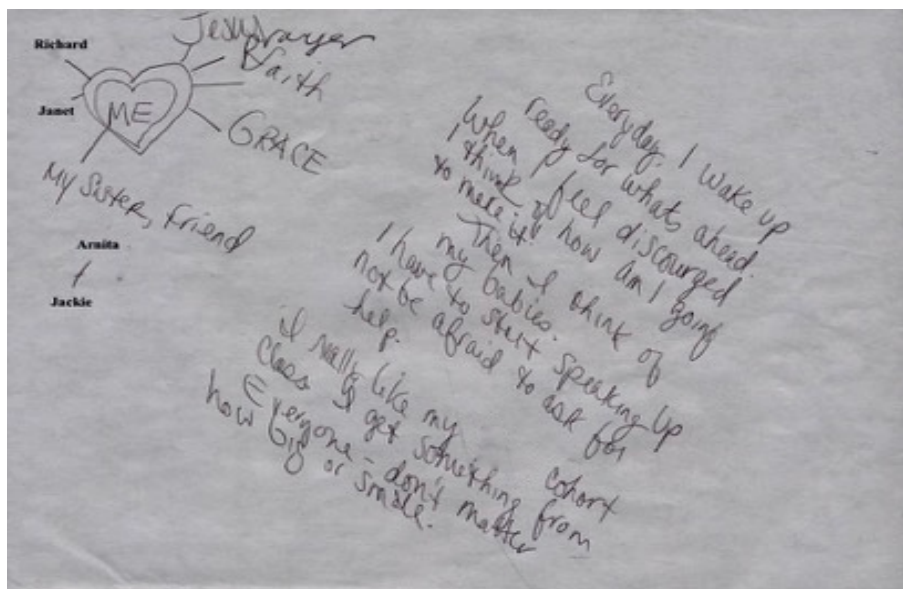 Richard
Janet
ME
Jesus
Prayer
Faith
GRACE
My Sister, friend
Arnita
Jackie
Everyday. I wake up
ready for whats ahead.
When I feel discourged
I think of how am I going
to make it!
Then I think of
my babies.
I have to start speaking up
not be afraid to ask for
help.
I really like my cohort
class I get something from
Everyone - don't matter
how big or small.